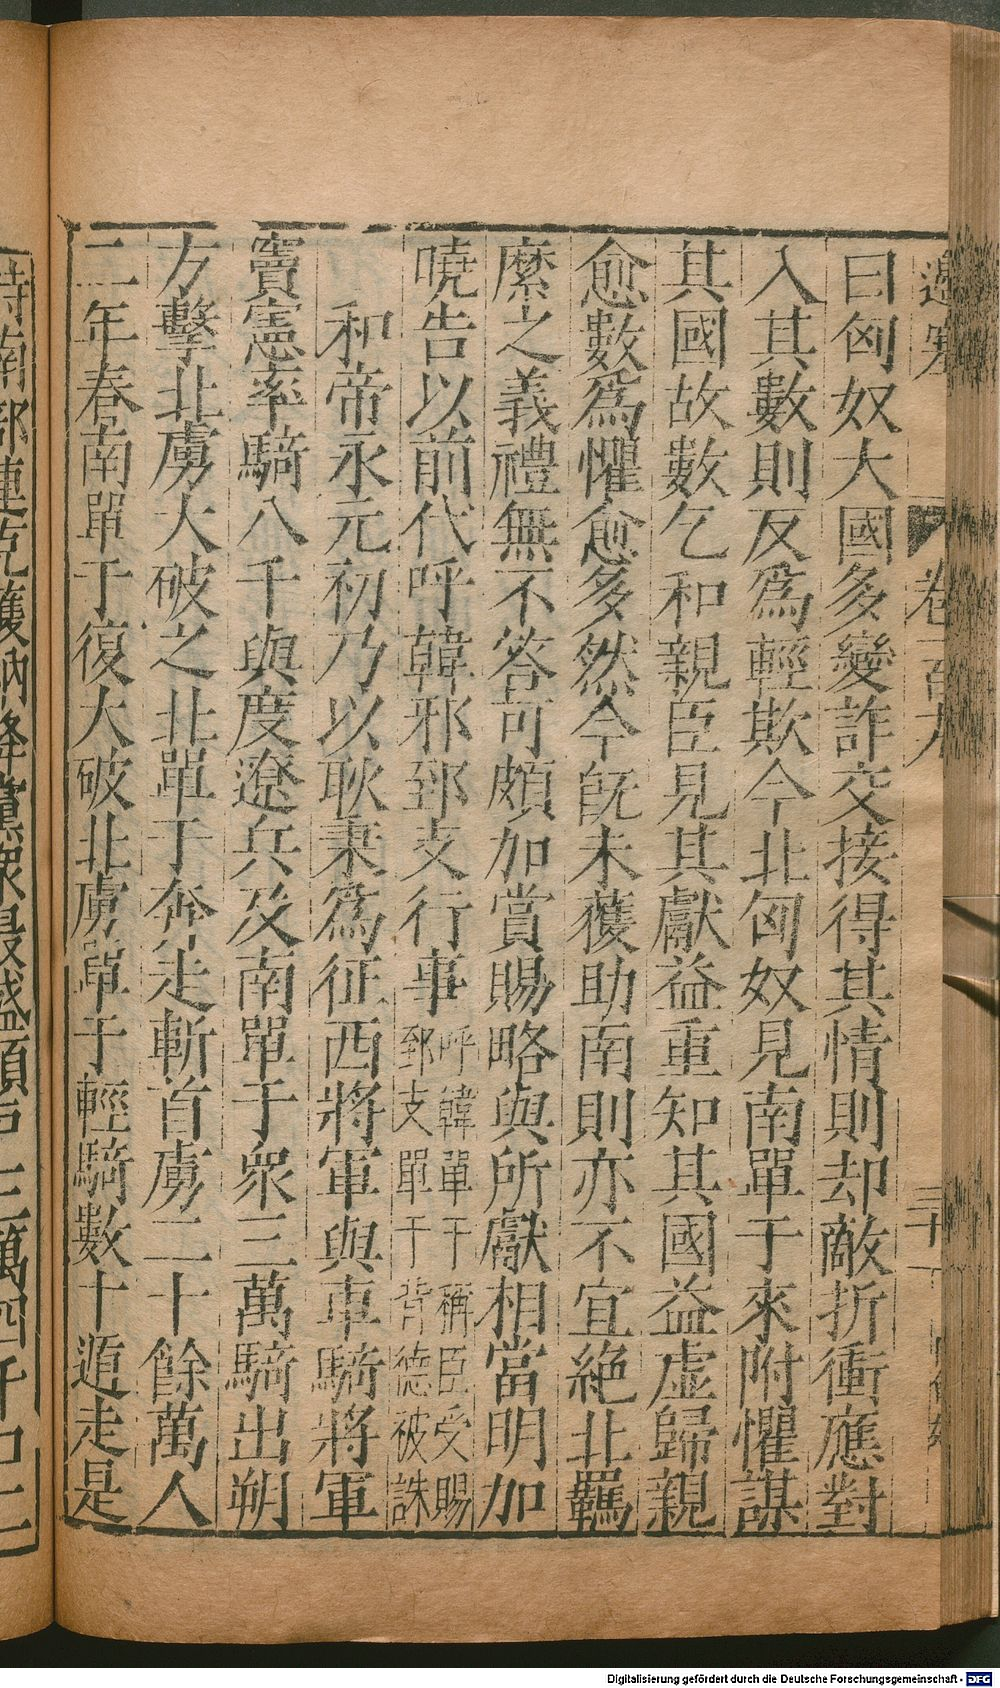 邊塞 卷一百九 三十
曰匈奴大國多變詐交接得其情則却敵折衝應對
入其數則反爲輕欺今北匈奴見南單于來附懼謀
其國故數乞和親臣見其獻益重知其國益虛歸親
愈數爲懼愈多然今旣未獲助南則亦不宜絶北羈
縻之義禮無不答可頗加賞賜略與所獻相當明加
曉告以前代呼韓邪郅支行事呼韓單于稱臣受賜郅支單于背德被誅
和帝永元初乃以耿秉爲征西將軍與車騎將軍
竇憲率騎八千與度遼兵及南單于衆三萬騎出朔
方擊北虜大破之北單于奔走斬首虜二十餘萬人
二年春南單于復大破北虜單于輕騎數十遁走是
時南部連克獲納降黨衆最盛領戶三萬四千口二
Digitalisierung gefördert durch die Deutsche Forschungsgemeinschaft - DFG